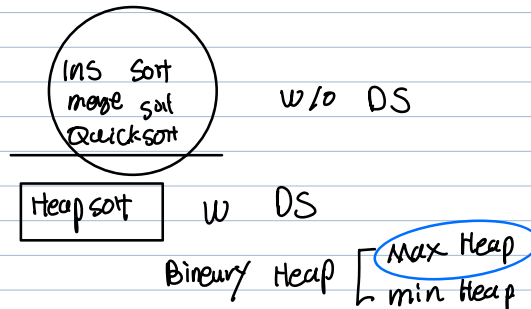 Ins Sort
merge sort
Quicksort
w/o DS
Heap sort
w DS
Bineury Heap
Max Heap
min Heap